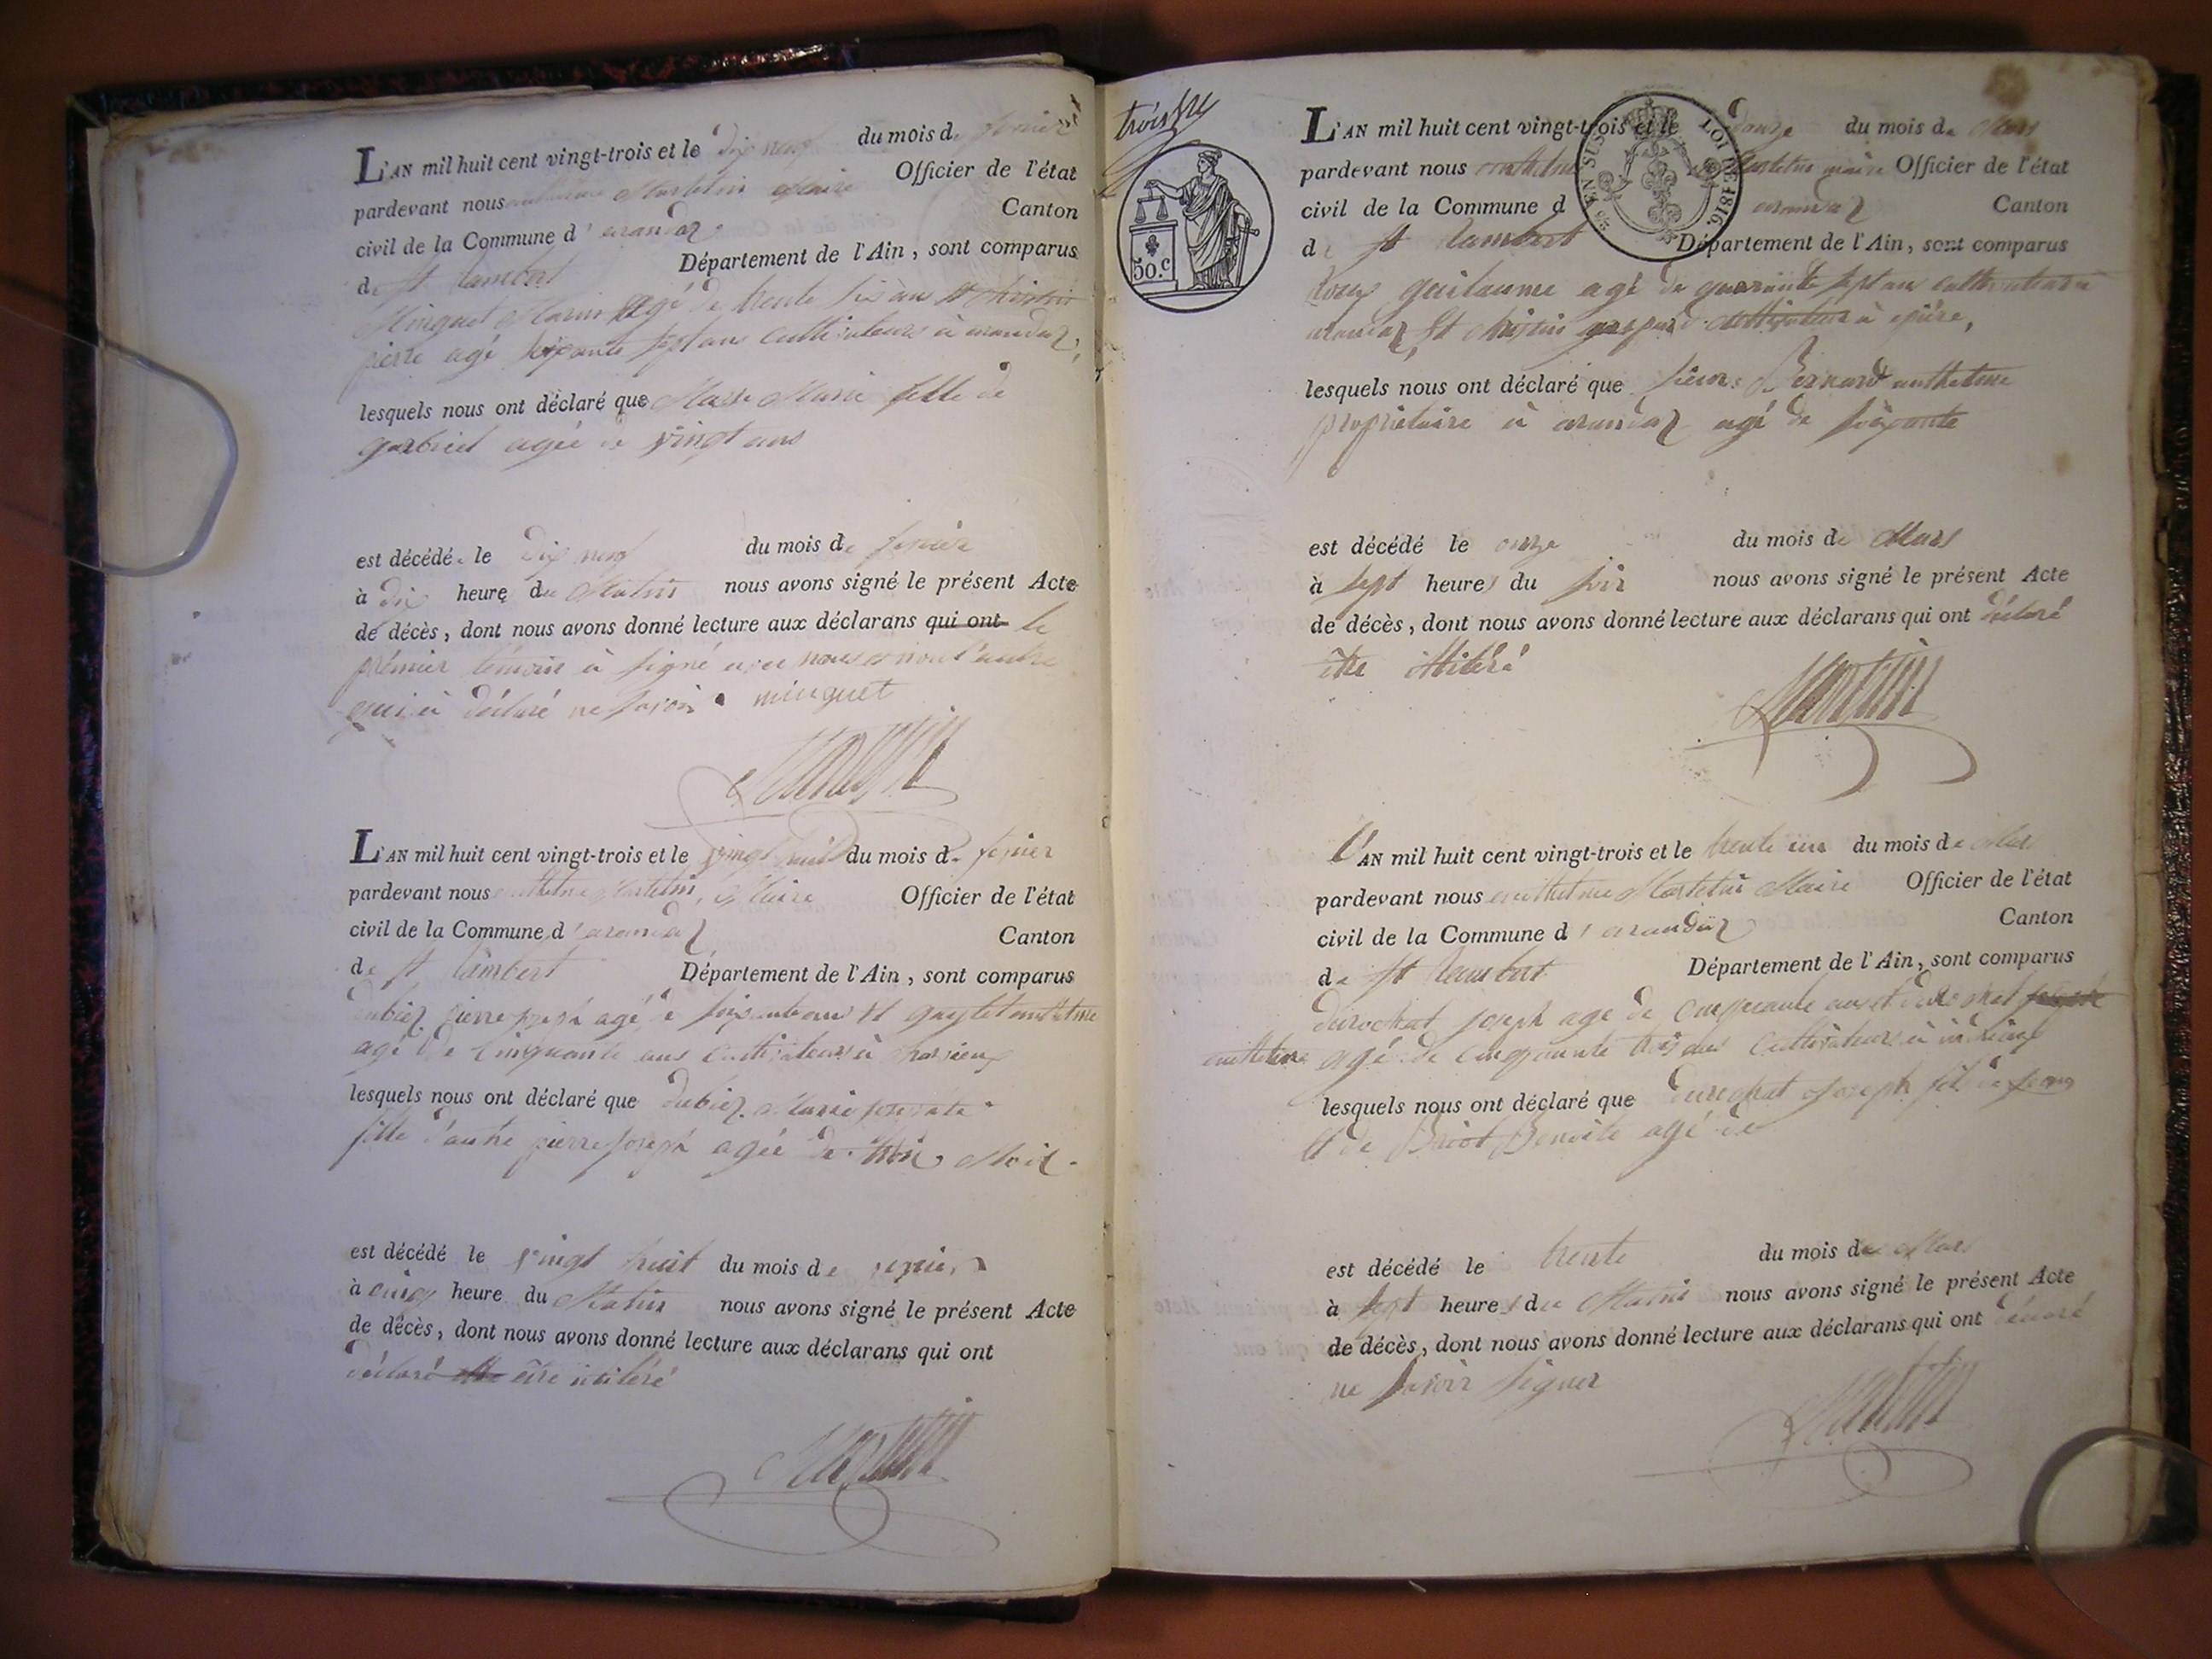 L'AN mil huit cent vingt-trois et le dix neuf du mois de fevrier
pardevant nous anthelme Martelin Maire Officier de l'état
civil de la Commune d'arandaz Canton
de st Rambert Département de l'Ain, sont comparus
Minguet Marin agé de trente six ans et
pierre agé soixante sept ans cultivateurs à arandaz,
lesquels nous ont déclaré que Marie fille de
gabriel agée de vingt ans
est décédée le dix neuf du mois de fevrier
à dix heure du Matin nous avons signé le présent Acte
de décès, dont nous avons donné lecture aux déclarans qui ont le
prémier témoin à signé avec nous et non l'autre
qui à déclaré ne savoir minguet
L'AN mil huit cent vingt-trois et le vingt huit du mois de fevrier
pardevant nous anthelme Martelin, Maire Officier de l'état
civil de la Commune d'arandaz Canton
de st Rambert Département de l'Ain, sont comparus
dubiez pierre joseph agé de soixante ans et anthelme
agé de Cinquante ans cultivateurs à
lesquels nous ont déclaré que dubiez Marie
fille d'autre pierre joseph agée de trois Mois.
est décédé le vingt huit du mois de fevrier
à cinq heure du Matin nous avons signé le présent Acte
de décès, dont nous avons donné lecture aux déclarans qui ont
déclaré être illitéré
trois fr
50.c
EN SUS LOI DE 1816.
L'AN mil huit cent vingt-trois et le douze du mois de Mars
pardevant nous anthelme Martelin maire Officier de l'état
civil de la Commune d arandaz Canton
de st Rambert Département de l'Ain, sont comparus
guilaume agé de quarante sept ans cultivateur à
arandaz, et gaspard cultivateur à
lesquels nous ont déclaré que sieur Bernard anthelme
propriétaire à arandaz agé de soixante
est décédé le onze du mois de Mars
à sept heures du soir nous avons signé le présent Acte
de décès, dont nous avons donné lecture aux déclarans qui ont déclaré
être illitéré
L'AN mil huit cent vingt-trois et le trente un du mois de Mars
pardevant nous anthelme Martelin Maire Officier de l'état
civil de la Commune d'arandaz Canton
de st Rambert Département de l'Ain, sont comparus
durochat joseph agé de cinquante ans et durochat
anthelme agé de cinquante trois ans Cultivateurs à
lesquels nous ont déclaré que durochat joseph fils de
et de Benoite agé de
est décédé le trente du mois de Mars
à sept heures du Matin nous avons signé le présent Acte
de décès, dont nous avons donné lecture aux déclarans qui ont déclaré
ne savoir signer